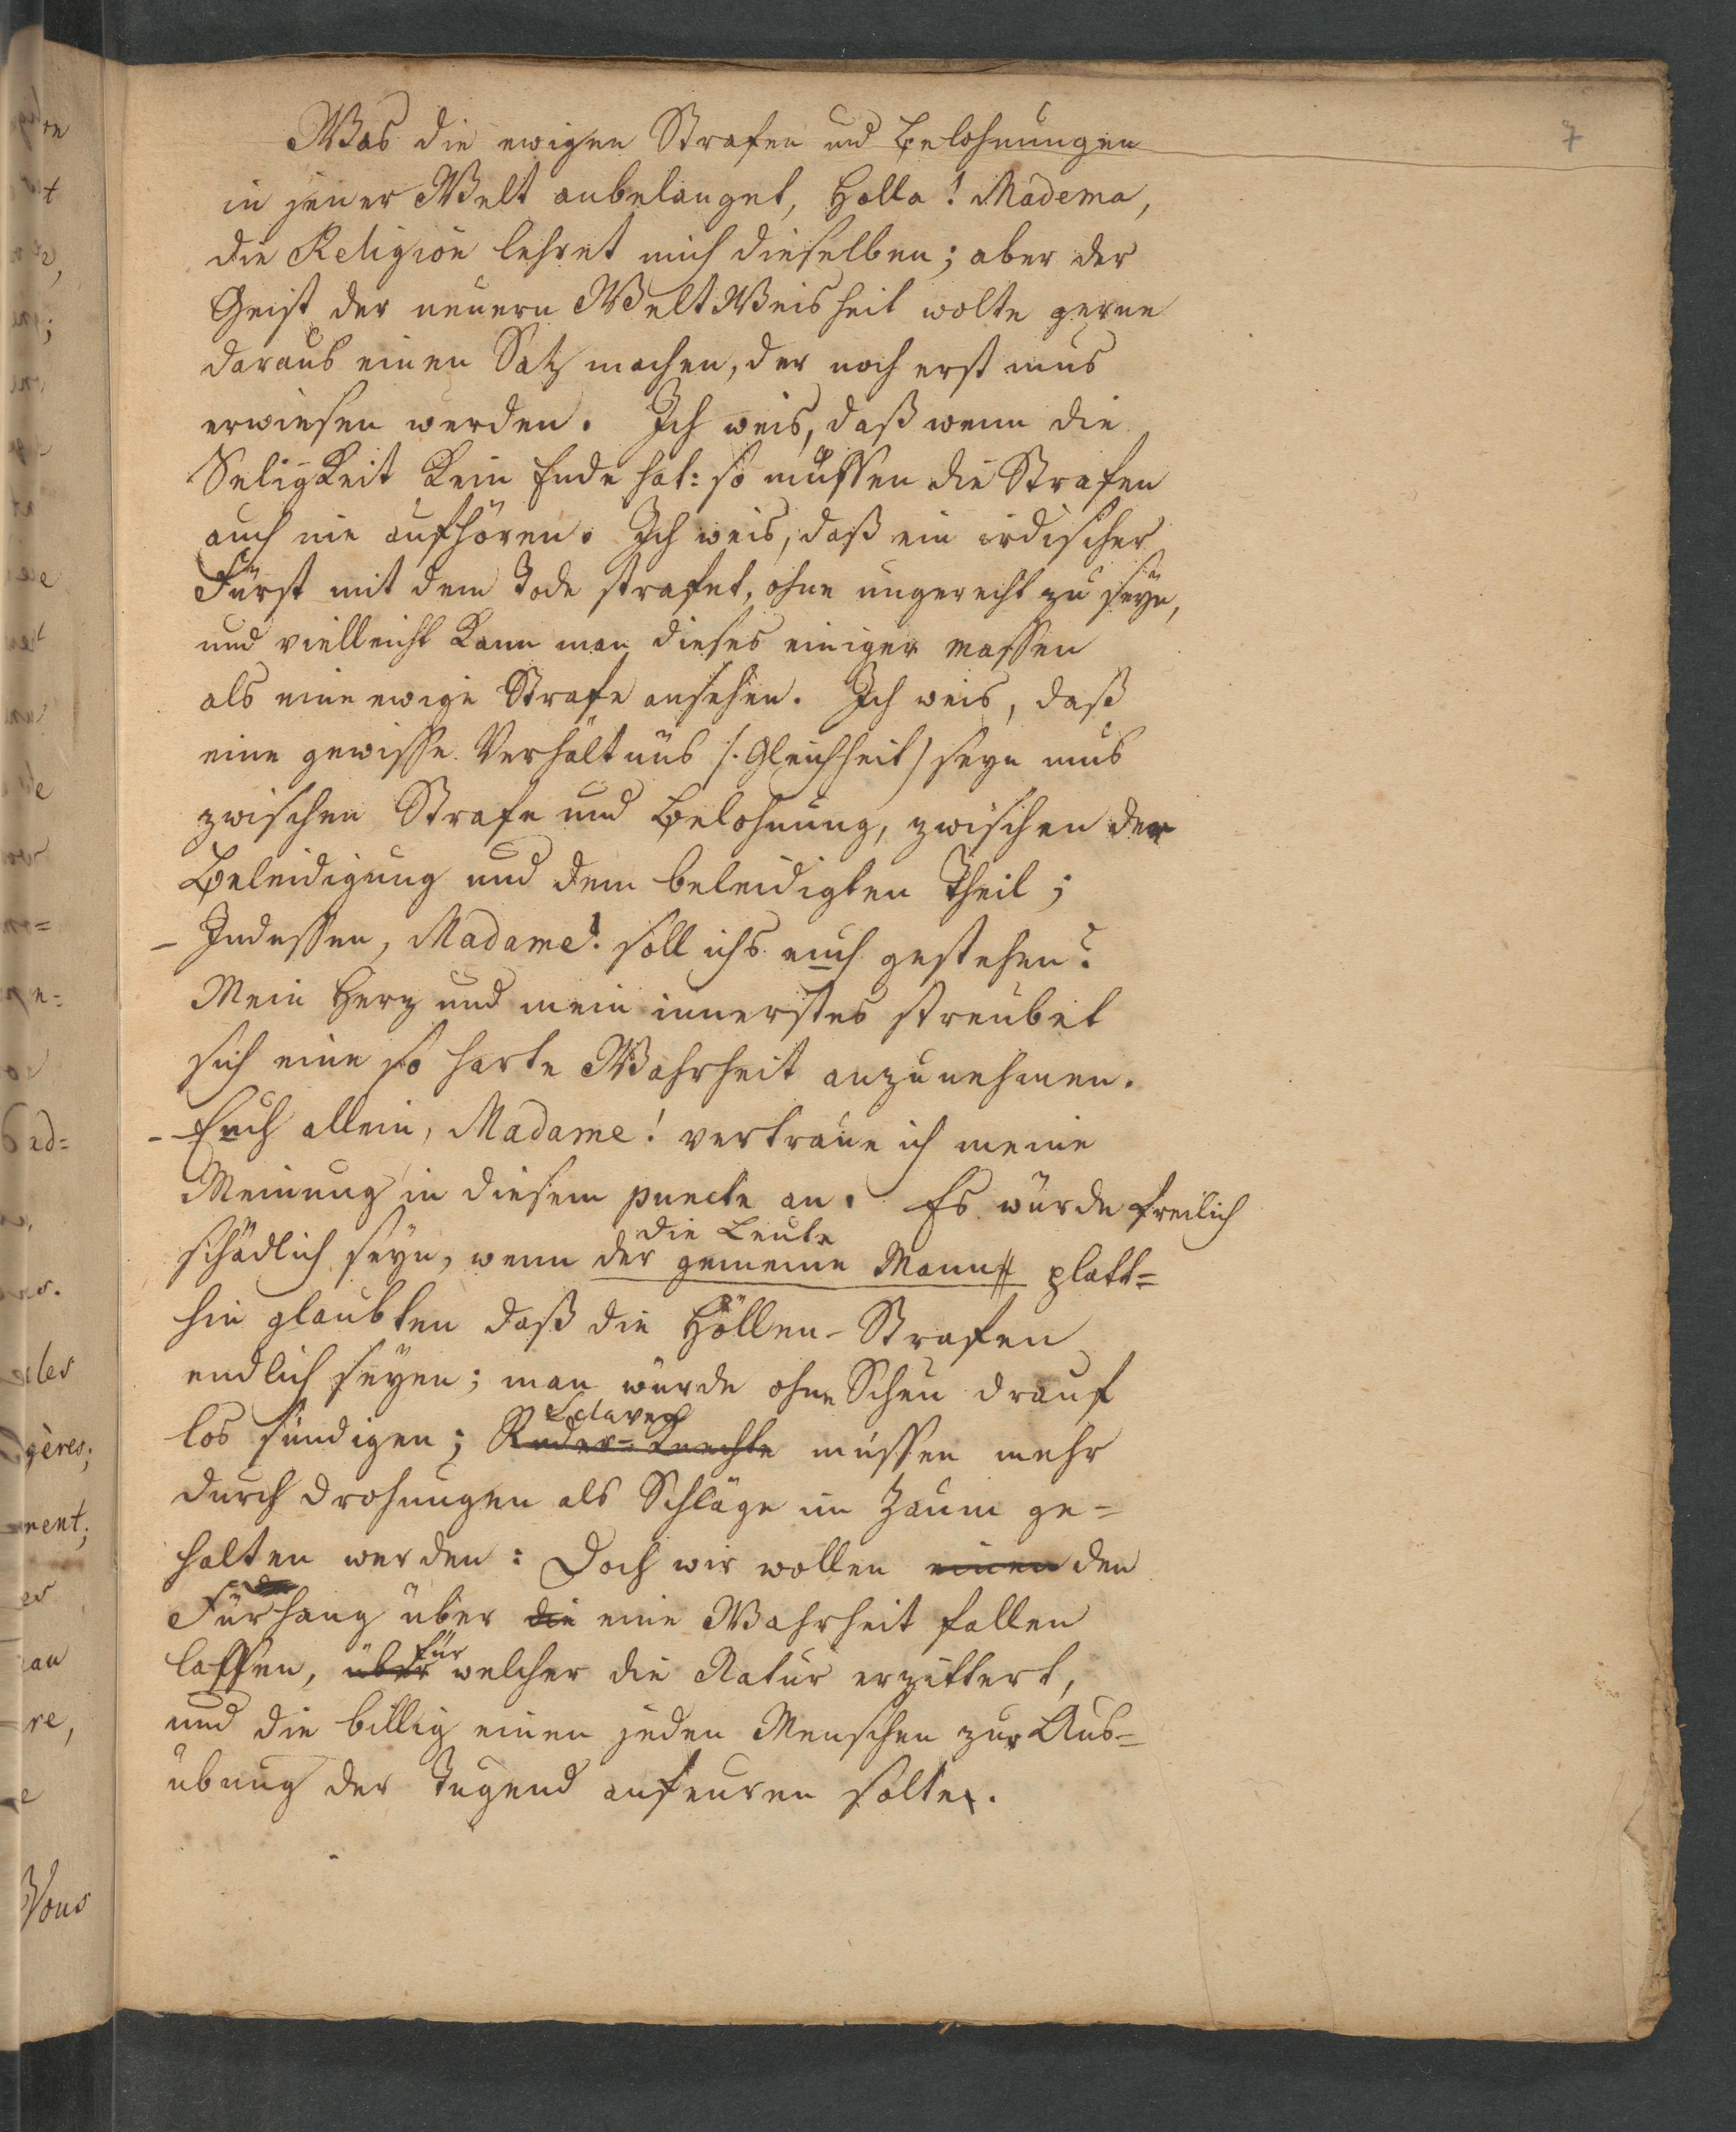 7
Was die ewigen Strafen und Belohnungen
in jener Welt anbelanget, holla! Madema,
die Religion lehret mich dieselben; aber der
Geist der neuern WeltWeisheit wolte gerne
daraus einen Satz machen, der noch erst mus
erwiesen werden. Ich weis, daß wenn die
Seligkeit kein Ende hat: so müssen die Strafen
auch nie aufhören. Ich weis, daß ein irdischer
Fürst mit dem Tode strafet, ohne ungerecht zu seyn,
und vielleicht kann man dieses einiger massen
als eine ewige Strafe ansehen. Ich weis, daß
eine gewisse Verhältnüs /. Gleichheit) seyn mus
zwischen Strafe und Belohnung, zwischen der
Beleidigung und dem beleidigten Theil;
– Indessen, Madame! soll ichs euch gestehen?
Mein Herz und mein innerstes streubet
sich eine so harte Wahrheit anzunehmen.
– Euch allein, Madame! vertraue ich meine
Meinung in diesem puncte an. Es würde freilich
die Leute
schädlich seyn, wenn der gemeine Mann platt=
hin glaubten daß die Höllen-Strafen
endlich seyen; man würde ohne Scheu drauf
Sclaven
los sündigen; Ruder=Knechte müssen mehr
durch drohungen als Schläge im Zaum ge=
halten werden: Doch wir wollen einen den
Fürhang über die eine Wahrheit fallen
für
lassen, über welcher die Natur erzittert,
und die billig einen jeden Menschen zur Aus=
übung der Tugend anfeuren solte.
gères;
nent;
es
au
re,
e
Vous